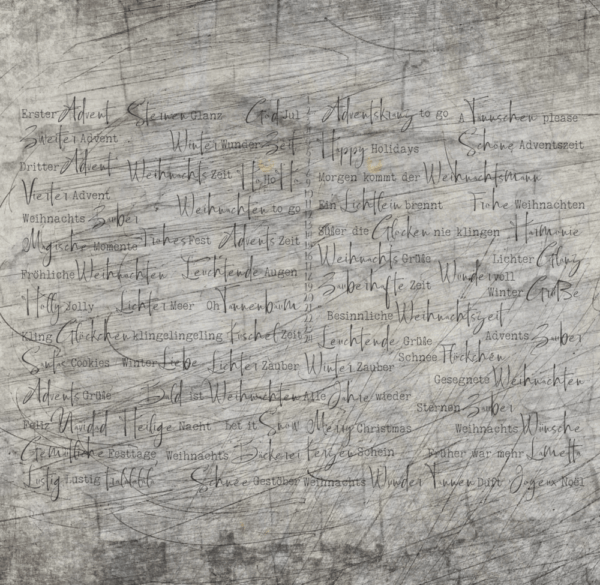 Erster Advent Sternen Glanz God Jul
Zweiter Advent Winter Wunder Zeit
Dritter Advent Weihnachts Zeit Ho Ho Ho
Vierter Advent
Weihnachts Zauber Weihnachten to go
Magische Momente Frohes Fest Advents Zeit
Fröhliche Weihnachten Leuchtende Augen
Holly Jolly Lichter Meer Oh Tannenbaum
Kling Glöckchen klingelingeling Kuschel Zeit
Santas Cookies Winter Liebe Lichter Zauber
Advents Grüße Bald ist Weihnachten
Feliz Navidad Heilige Nacht Let it Snow
Gemütliche Festtage Weihnachts Bäckerei
Lustig Lustig Tralalalala Schnee Gestöber
Adventskranz to go A Tännschen please
Happy Holidays Schöne Adventszeit
Morgen kommt der Weihnachtsmann
Ein Lichtlein brennt Frohe Weihnachten
Süßer die Glocken nie klingen Harmonie
Weihnachts Grüße Lichter Glanz
Zauberhafte Zeit Wundervoll
Winter Grüße
Besinnliche Weihnachtszeit
Leuchtende Grüße Advents Zauber
Winter Zauber Schnee Flöckchen
Gesegnete Weihnachten
Alle Jahre wieder
Sternen Zauber
Merry Christmas Weihnachts Wünsche
Kerzen Schein Früher war mehr Lametta
Weihnachts Wunder Tannen Duft Joyeux Noël